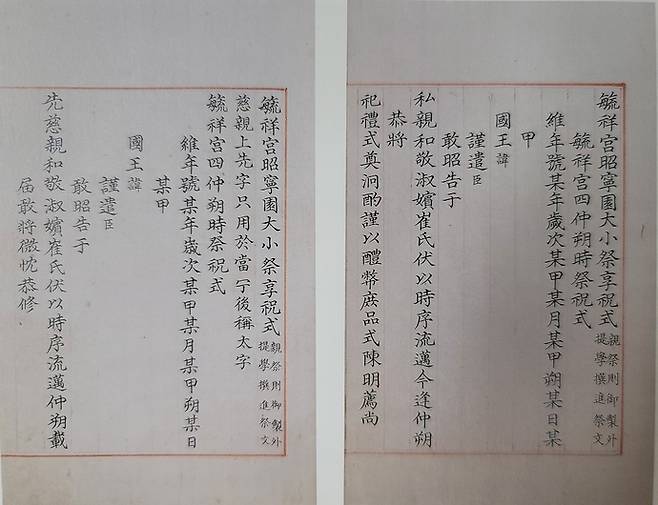 毓祥宮昭寧園大小祭享祝式親祭則御製外
提學撰進祭文
毓祥宮四仲朔時祭祝式
維年號某年歲次某甲某月某甲朔某日某
甲
國王諱
謹遣臣
敢昭告于
私親和敬淑嬪崔氏伏以時序流邁今逢仲朔
恭將
祀禮式奠泂酌謹以醴幣庶品式陳明薦尚
毓祥宮昭寧園大小祭享祝式親祭則御製外
提學撰進祭文
慈親上先字只用於當宁後稱太字
毓祥宮四仲朔時祭祝式
維年號某年歲次某甲某月某甲朔某日
某甲
國王諱
謹遣臣
敢昭告于
先慈親和敬淑嬪崔氏伏以時序流邁仲朔載
屆敢將微忱恭修